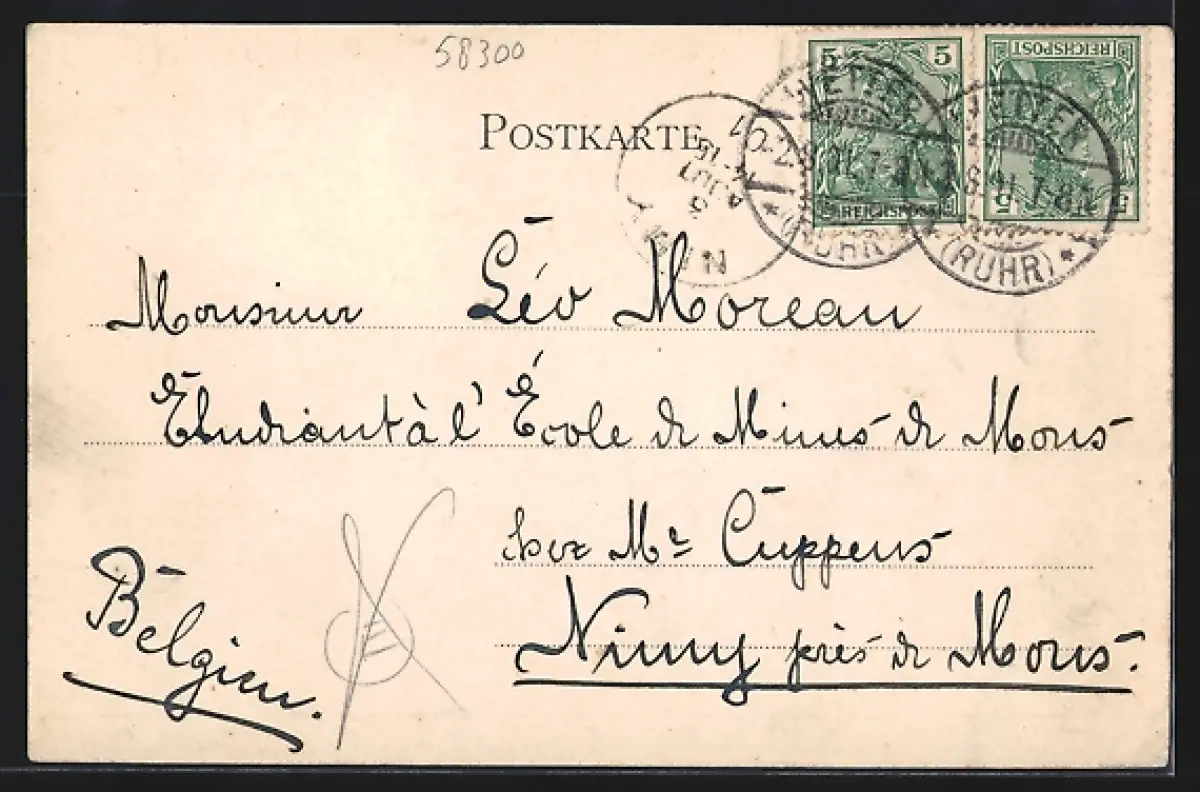 58300
POSTKARTE
5 5
REICHSPOST
REICHSPOST
5 5
WETTER
(RUHR)
WETTER
(RUHR)
Monsieur Léo Moreau
Etudiant à l'École de Mines de Mons
chez Mr Cuppens
Nimy près de Mons.
Belgien.